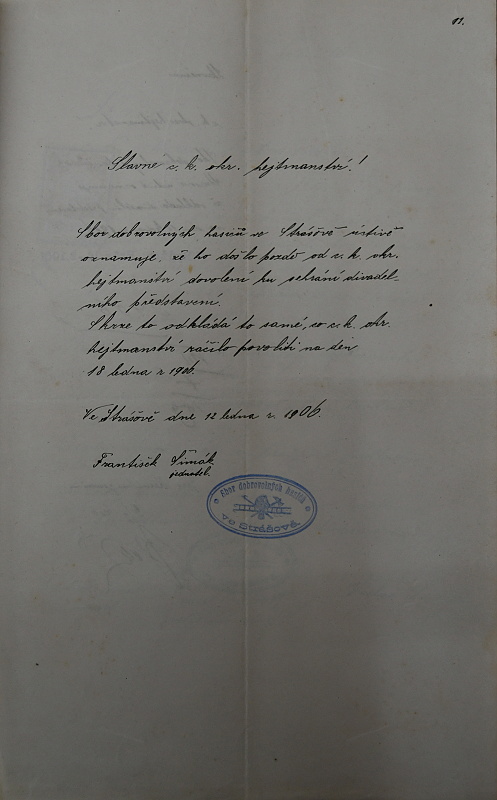 11.
Slavné c. k. okr. hejtmanství!
Sbor dobrovolných hasičů ve Strášově uctivě
oznamuje, že ho došlo pozdě od c. k. okr.
hejtmanství dovolení ku sehrání divadel-
ního představení.
Skrze to odkládá to samé, co c. k. okr.
hejtmanství ráčilo povoliti na den
18 ledna r 1906.
Ve Strášově dne 12 ledna r. 1906.
František Šimák
jednatel.
Sbor dobrovolných hasičů
ve Strášově